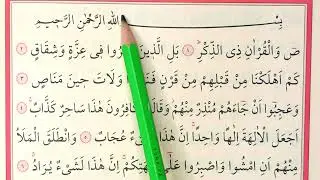 بِسْمِ اللّٰهِ الرَّحْمٰنِ الرَّحٖيمِ
صٓ وَالْقُرْاٰنِ ذِى الذِّكْرِ ﴿١﴾ بَلِ الَّذٖينَ كَفَرُوا فٖى عِزَّةٍ وَشِقَاقٍ ﴿٢﴾
كَمْ اَهْلَكْنَا مِنْ قَبْلِهِمْ مِنْ قَرْنٍ فَنَادَوْا وَلَاتَ حٖينَ مَنَاصٍ ﴿٣﴾
وَعَجِبُٓوا اَنْ جَٓاءَهُمْ مُنْذِرٌ مِنْهُمْ وَقَالَ الْكَافِرُونَ هٰذَا سَاحِرٌ كَذَّابٌ ﴿٤﴾
اَجَعَلَ الْاٰلِهَةَ اِلٰهًا وَاحِدًا اِنَّ هٰذَا لَشَیْءٌ عُجَابٌ ﴿٥﴾ وَانْطَلَقَ الْمَلَاُ
مِنْهُمْ اَنِ امْشُوا وَاصْبِرُوا عَلٰٓى اٰلِهَتِكُمْ اِنَّ هٰذَا لَشَیْءٌ يُرَادُ ﴿٦﴾